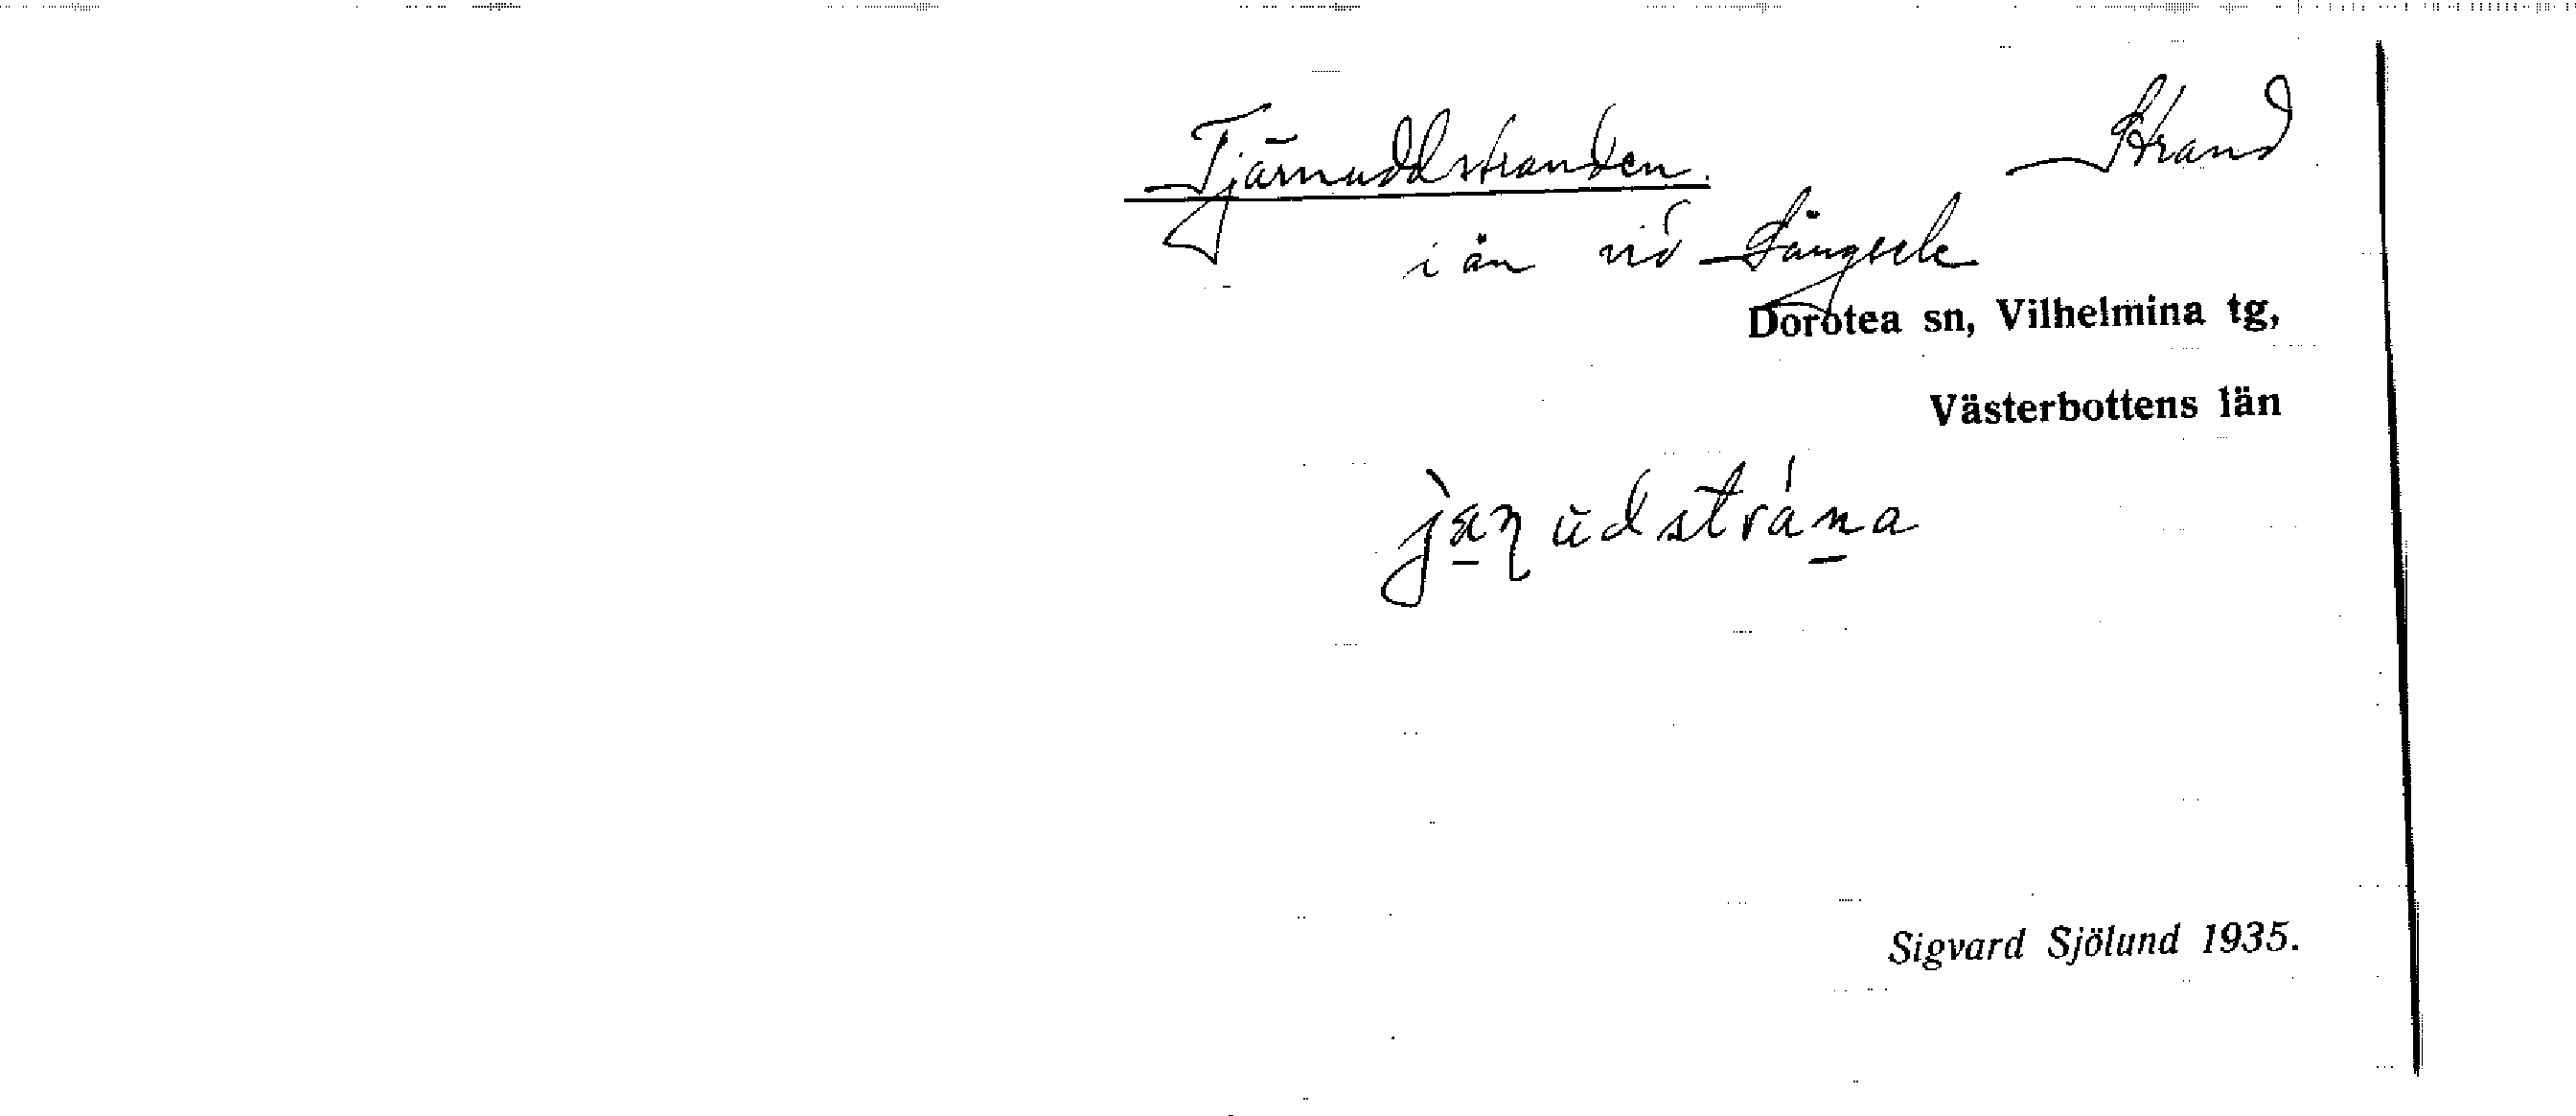 Tjärnuddstranden. Strand
i ån vid Långsele
Dorotea sn, Vilhelmina tg,
Västerbottens län
Sigvard Sjölund 1935.